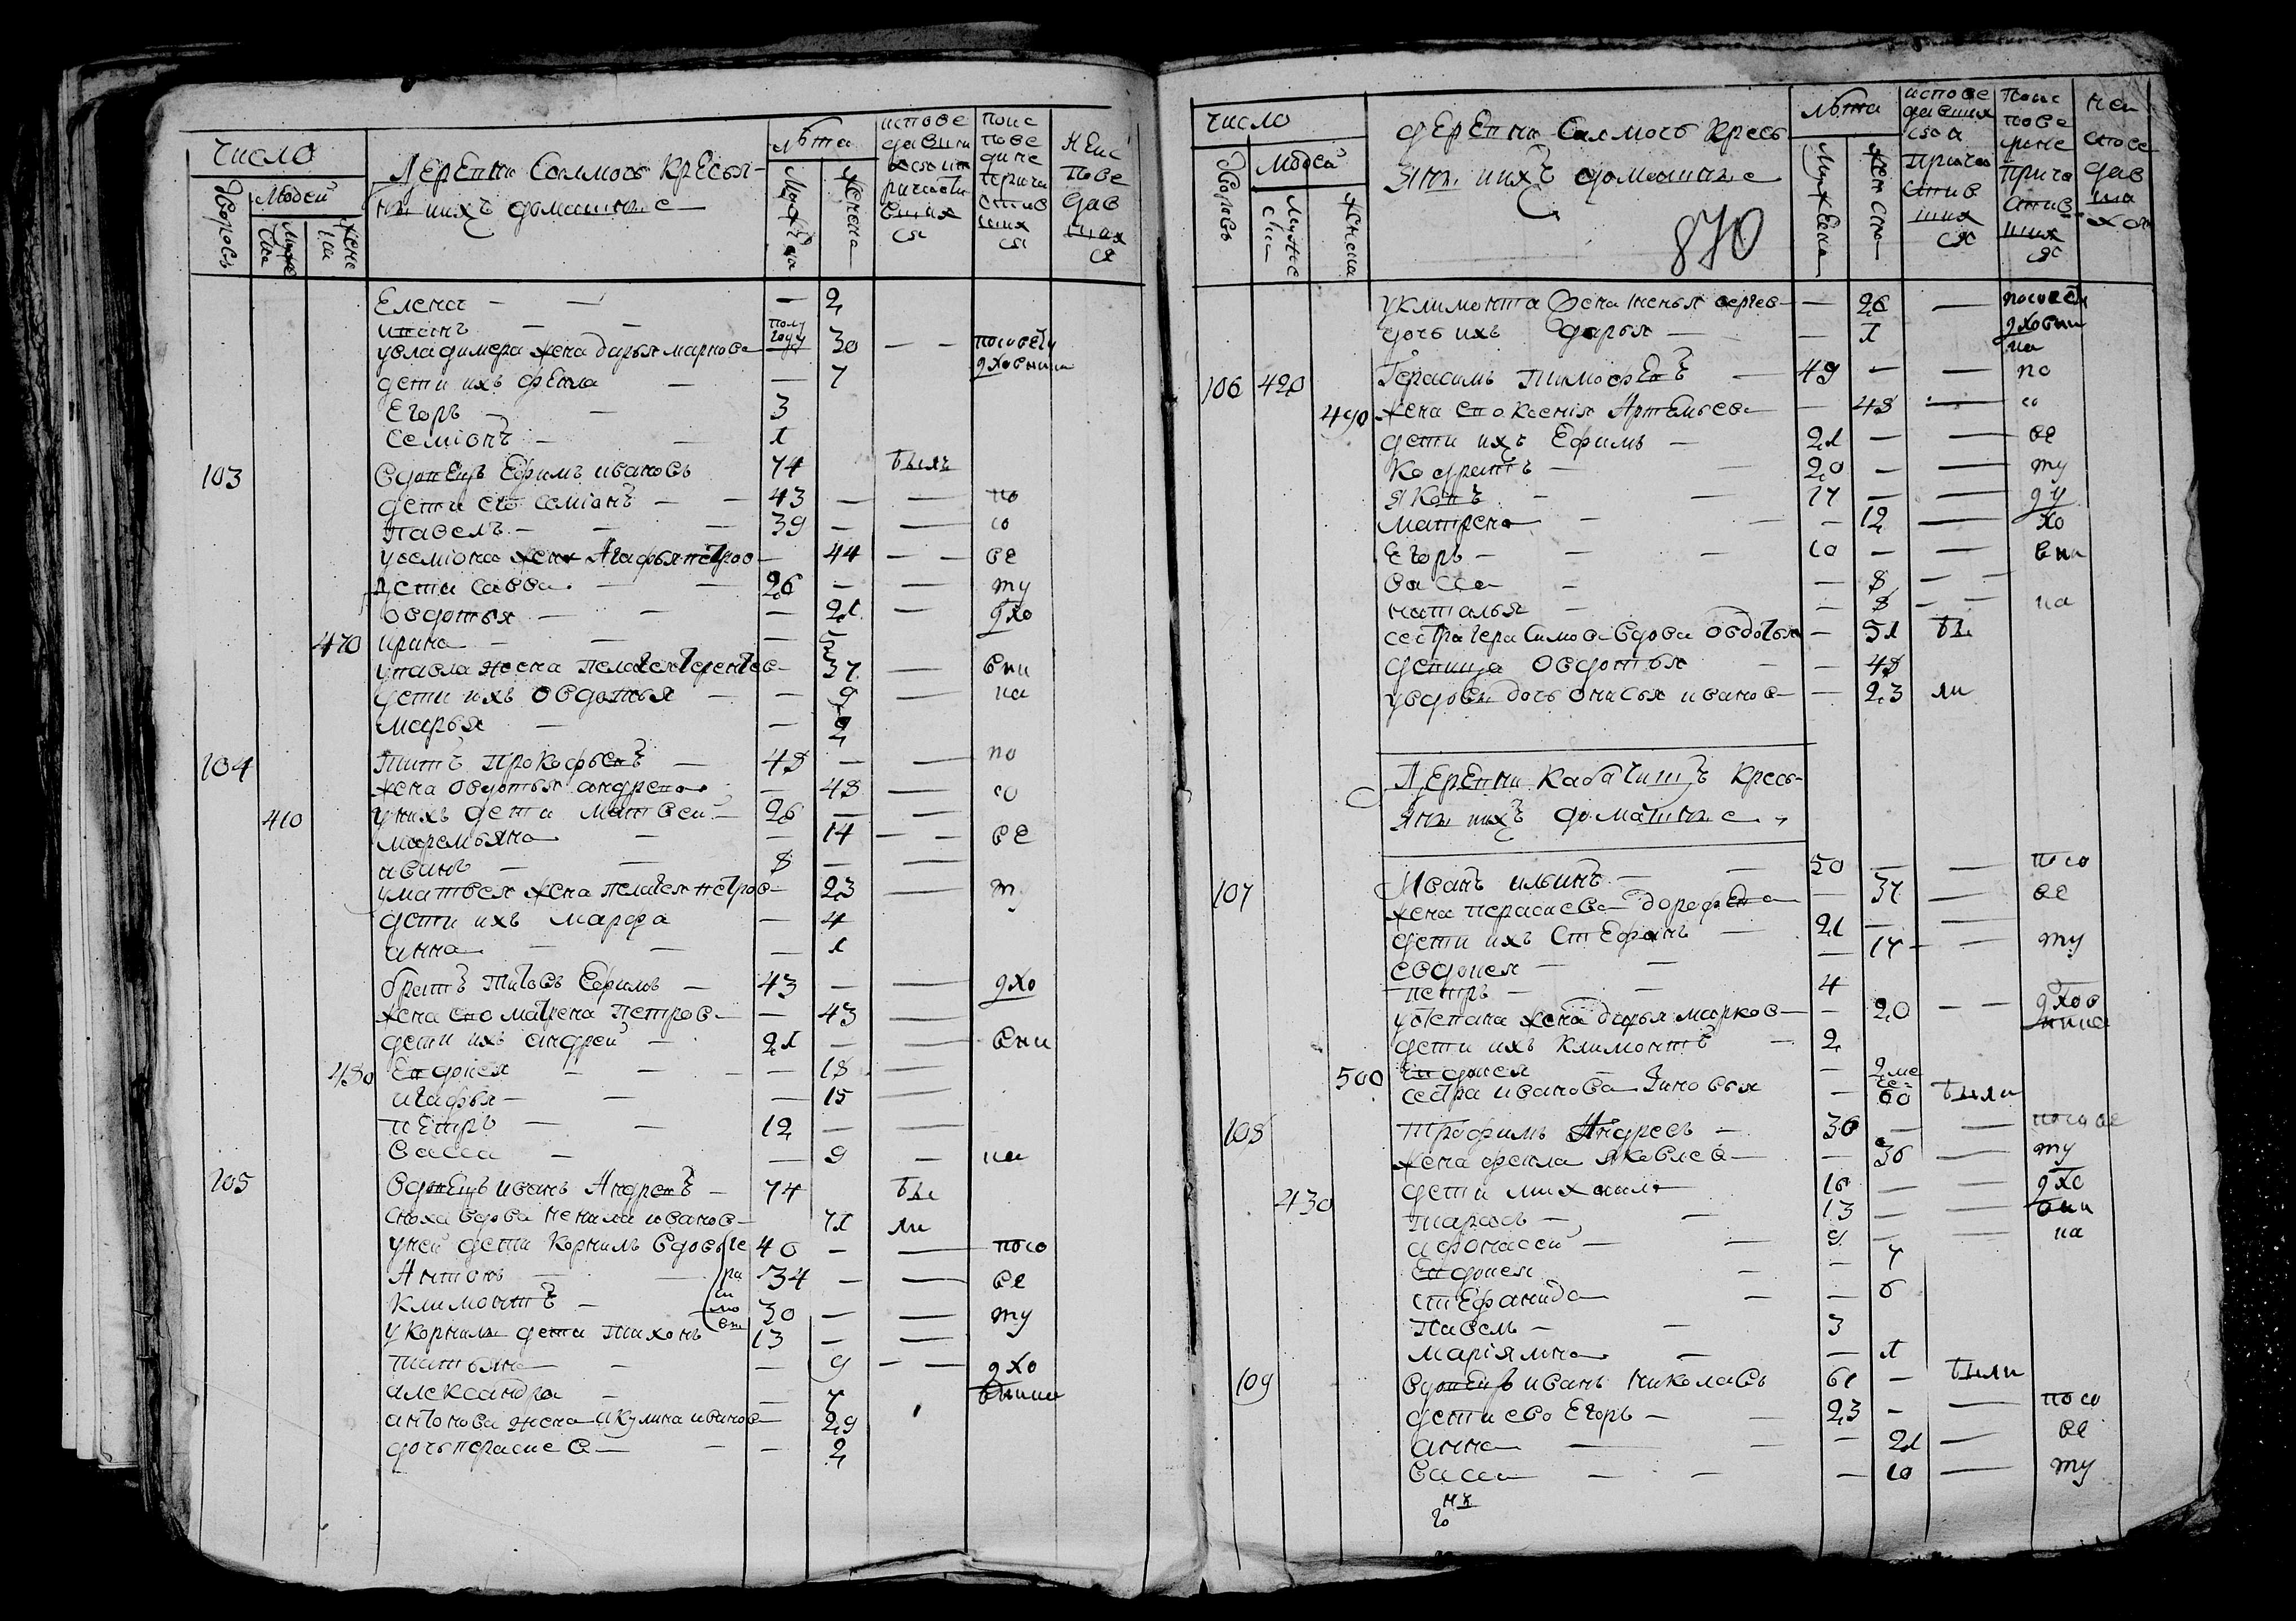 число
Дворовъ
Людей
Мужеска
женска
Деревни Салмосъ кресья-
ны и ихъ домашние
лѣта
Мужеска
женска
исповедавшихся и причастившихся
по исповеди не причастившихся
не исповедавшихся
Елена — — — 2
иванъ — — полугоду
у владимера жена дарья маркова — 30 — — по совету
дети ихъ фекла — — 7 духовника
Егоръ — — 3
Семионъ — — 1
103 вдовецъ Ефимъ ивановъ 74 былъ
дети ево семионъ — — 43 — — по
павелъ — — — 39 — — со
у семиона жена Агафья петров — 44 — — ве
дети савва — — 26 — — ту
овдотья — — — 21 — дхо
470 ирина — — — 5
у павла жена пелагея терентев — 37 — вни
дети ихъ овдотья — — 9 — ка
марья — — 2
104 Титъ Прокофьевъ — 48 — — по
жена овдотья андрева — 48 — со
410 у нихъ дети матвей — 26 — —
маремьяна — — 14 — — ве
ивинъ — — 8 — —
у матвея жена пелагея петров — 23 — ту
дети ихъ марфа — 4
анна — — — 1
братъ титовъ Ефимъ — 43 — — дхо
жена ево матрена Петров — — 43 —
дети ихъ андрей — 21 — — вни
480 Евдокея — — — — 18 —
агафья — — — 15 —
петръ — — 12 — —
васса — — 9 — ка
105 вдовецъ иванъ Андревъ — 74 бы
сноха вдова ненила иванов — 71 ли
у ней дети корнилъ вдовъ 40 — — посо
Антонъ — — 34 — — ве
климонтъ — 30 — — ту
у корнилы дети тихонъ 13 — —
татьяна — — — 9 — — дхо
александра — — 7 вника
антонова жена акулина иванов — 29
дочь параске в — — — 2
число
Дворовъ
Людей
Мужеска
женска
деревни Салмосъ кресь
яны и ихъ домашние
870
лѣта
Мужеска
женска
исповедавшихся и причастившихся
по исповеди не причастившихся
не исповедавшихся
у климонта жена ненья сергев — 26 — по совету
дочь ихъ дарья — — 1 духовни
ка
106 420 Герасимъ Тимофеевъ — 49 — — по
490 жена ево ксения Артемьева — 48 — со
дети ихъ Ефимъ — 21 — — ве
кодратъ — — 20 — — ту
яковъ — — 17 — — ду
матрена — — — 12 — хо
Егоръ — — — 10 — — вни
васса — — 8 — —
наталья — — 8 — — ка
сестра герасимова вдова овдотья — 51 бы
девица овдотья — — 48
у вдовы дочь онисья иванов — — 23 ли
Деревни Кабачищъ кресь-
яны и ихъ домашние
107 Иванъ ильинъ — — 50 — — посо
жена параскева дорофеева — 37 — ве
дети ихъ Стефанъ — 21 — —
евдокея — — — 17 — — ту
петръ — — 4
у степана жена дарья марков — — 20 — — дхов
ника
дети ихъ климонтъ — 2
500 Евдокея — — 2 ме
сестра иванова зиновья — 60 были
108 трофимъ Андреевъ — 36 — — посове
жена фекла яковлев — — 36 — ту
430 дети михаила 16 — — дхо
тарасъ — — 13 — — вни
афонасей — — 9 — — ка
Евдокея — — 7
стефанида — — 6
павелъ — — 3
мариямна — — 1
109 вдовецъ иванъ николаевъ 61 — были
дети ево Егоръ — — 23 — посо
анна — — — 21 — ве
васса — — — 10 — ту